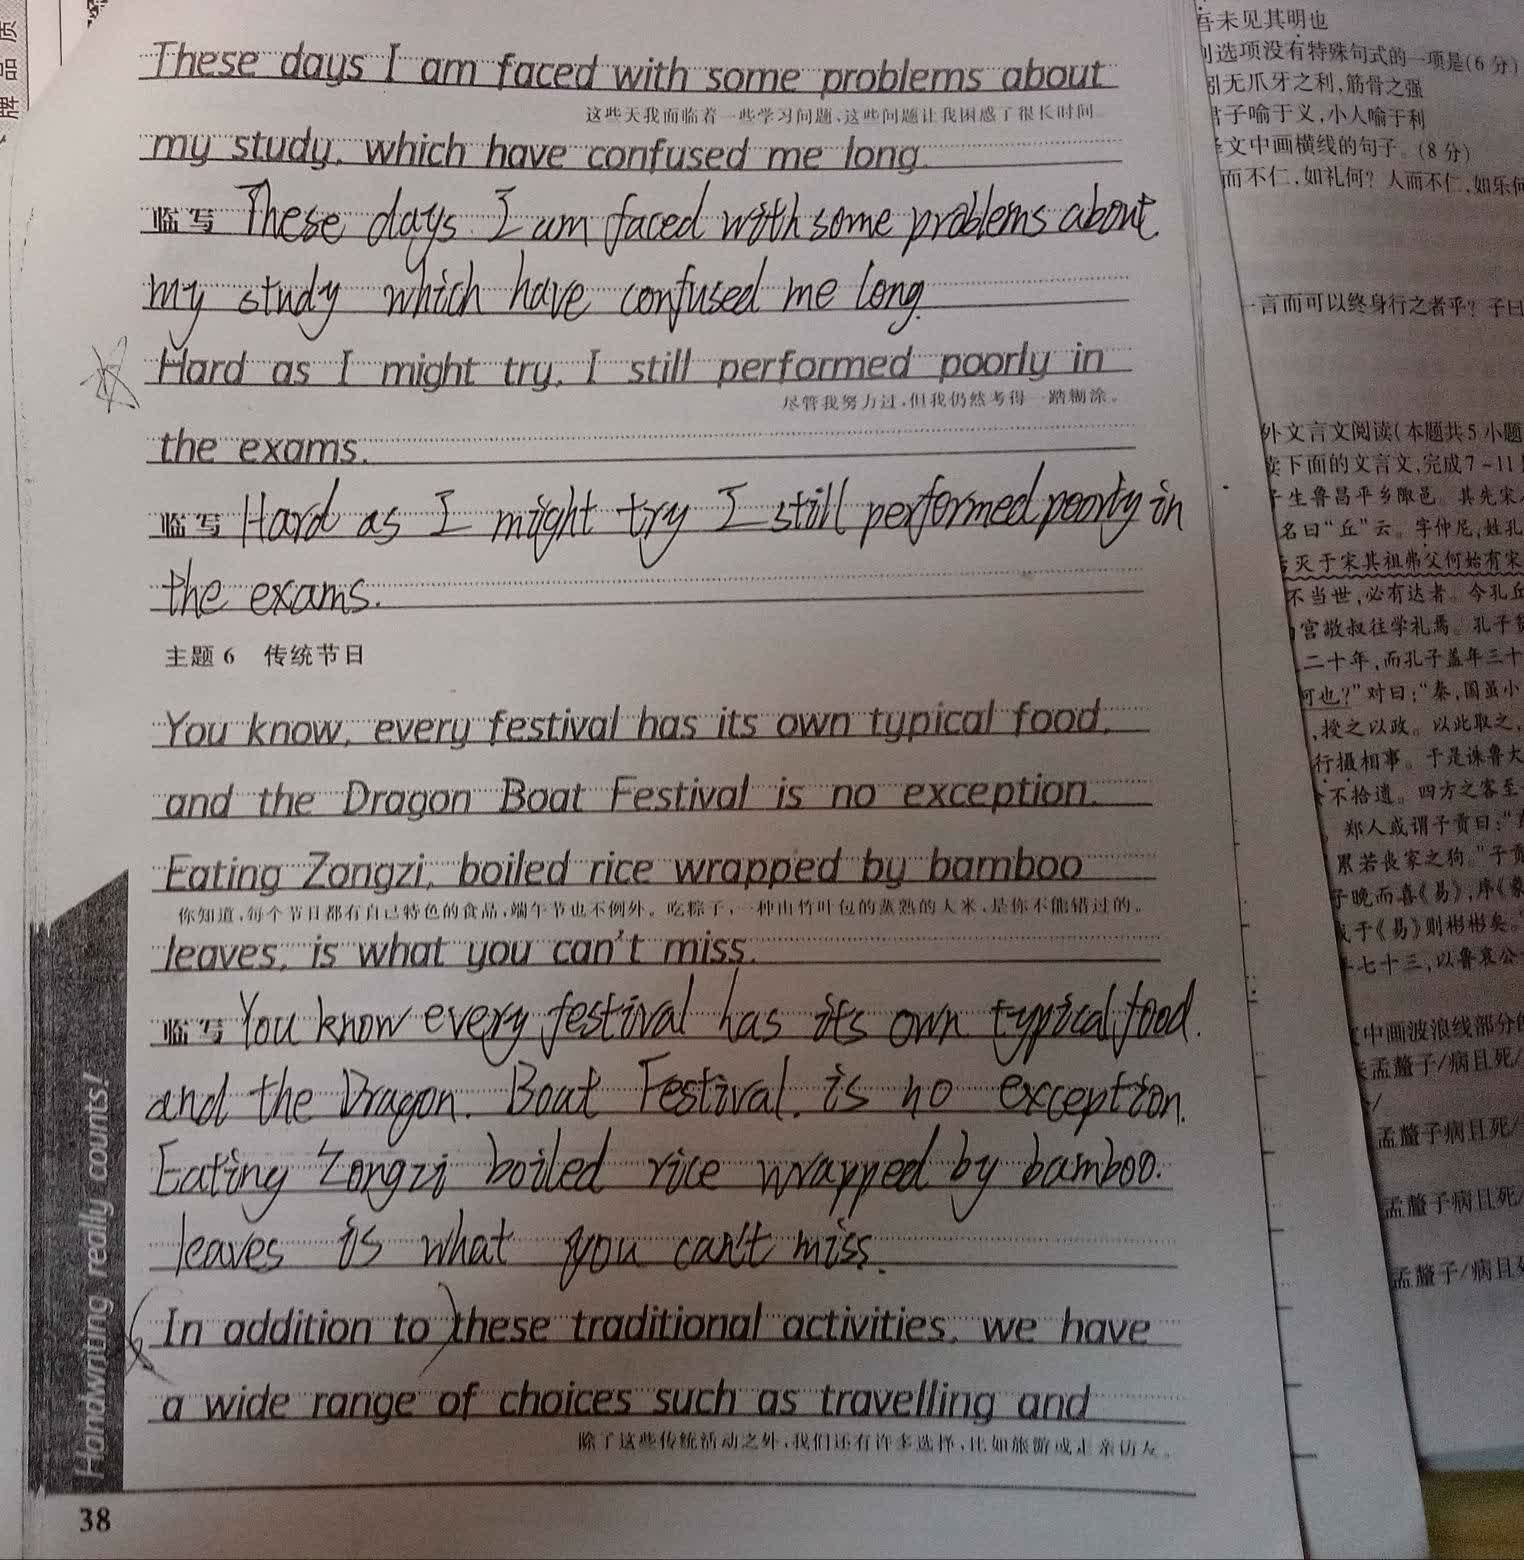 These days I am faced with some problems about
这些天我面临着一些学习问题,这些问题让我困惑了很长时间
my study, which have confused me long.
临写 These days I am faced with some problems about
my study which have confused me long.
Hard as I might try, I still performed poorly in
尽管我努力过,但我仍然考得一踏糊涂。
the exams.
临写 Hard as I might try I still performed poorly in
the exams.
主题6 传统节日
You know, every festival has its own typical food,
and the Dragon Boat Festival is no exception.
Eating Zongzi, boiled rice wrapped by bamboo
你知道,每个节日都有自己特色的食品,端午节也不例外。吃粽子,一种由竹叶包的蒸熟的大米,是你不能错过的。
leaves, is what you can't miss.
临写 You know every festival has its own typical food.
and the Dragon. Boat Festival. is no exception.
Eating Zongzi boiled rice wrapped by bamboo.
leaves is what you can't miss.
(In addition to) these traditional activities, we have
a wide range of choices such as travelling and
除了这些传统活动之外,我们还有许多选择,比如旅游或走亲访友。
Handwriting really counts!
38
牌品质
吾未见其明也
选项没有特殊句式的一项是(6分)
无爪牙之利,筋骨之强
君子喻于义,小人喻于利
文中画横线的句子。(8分)
而不仁,如礼何?人而不仁,如乐何
一言而可以终身行之者乎?子曰
外文言文阅读(本题共5小题
读下面的文言文,完成7-11
生鲁昌平乡陬邑。其先宋
名曰“丘”云。字仲尼,姓孔
灭于宋其祖弗父何始有宋
不当世,必有达者。今孔丘
宫敬叔往学礼焉。孔子
二十年,而孔子盖年三十
何也?”对曰:“秦,国虽小
,授之以政。以此取之,
行摄相事。于是诛鲁大
不拾遗。四方之客至
郑人或谓子贡曰:“
累若丧家之狗。”子贡
子晚而喜《易》,序《彖
于《易》则彬彬矣。”
七十三,以鲁哀公
文中画波浪线部分的
孟釐子/病且死/
孟釐子病且死/
孟釐子病且死/
孟釐子/病且死